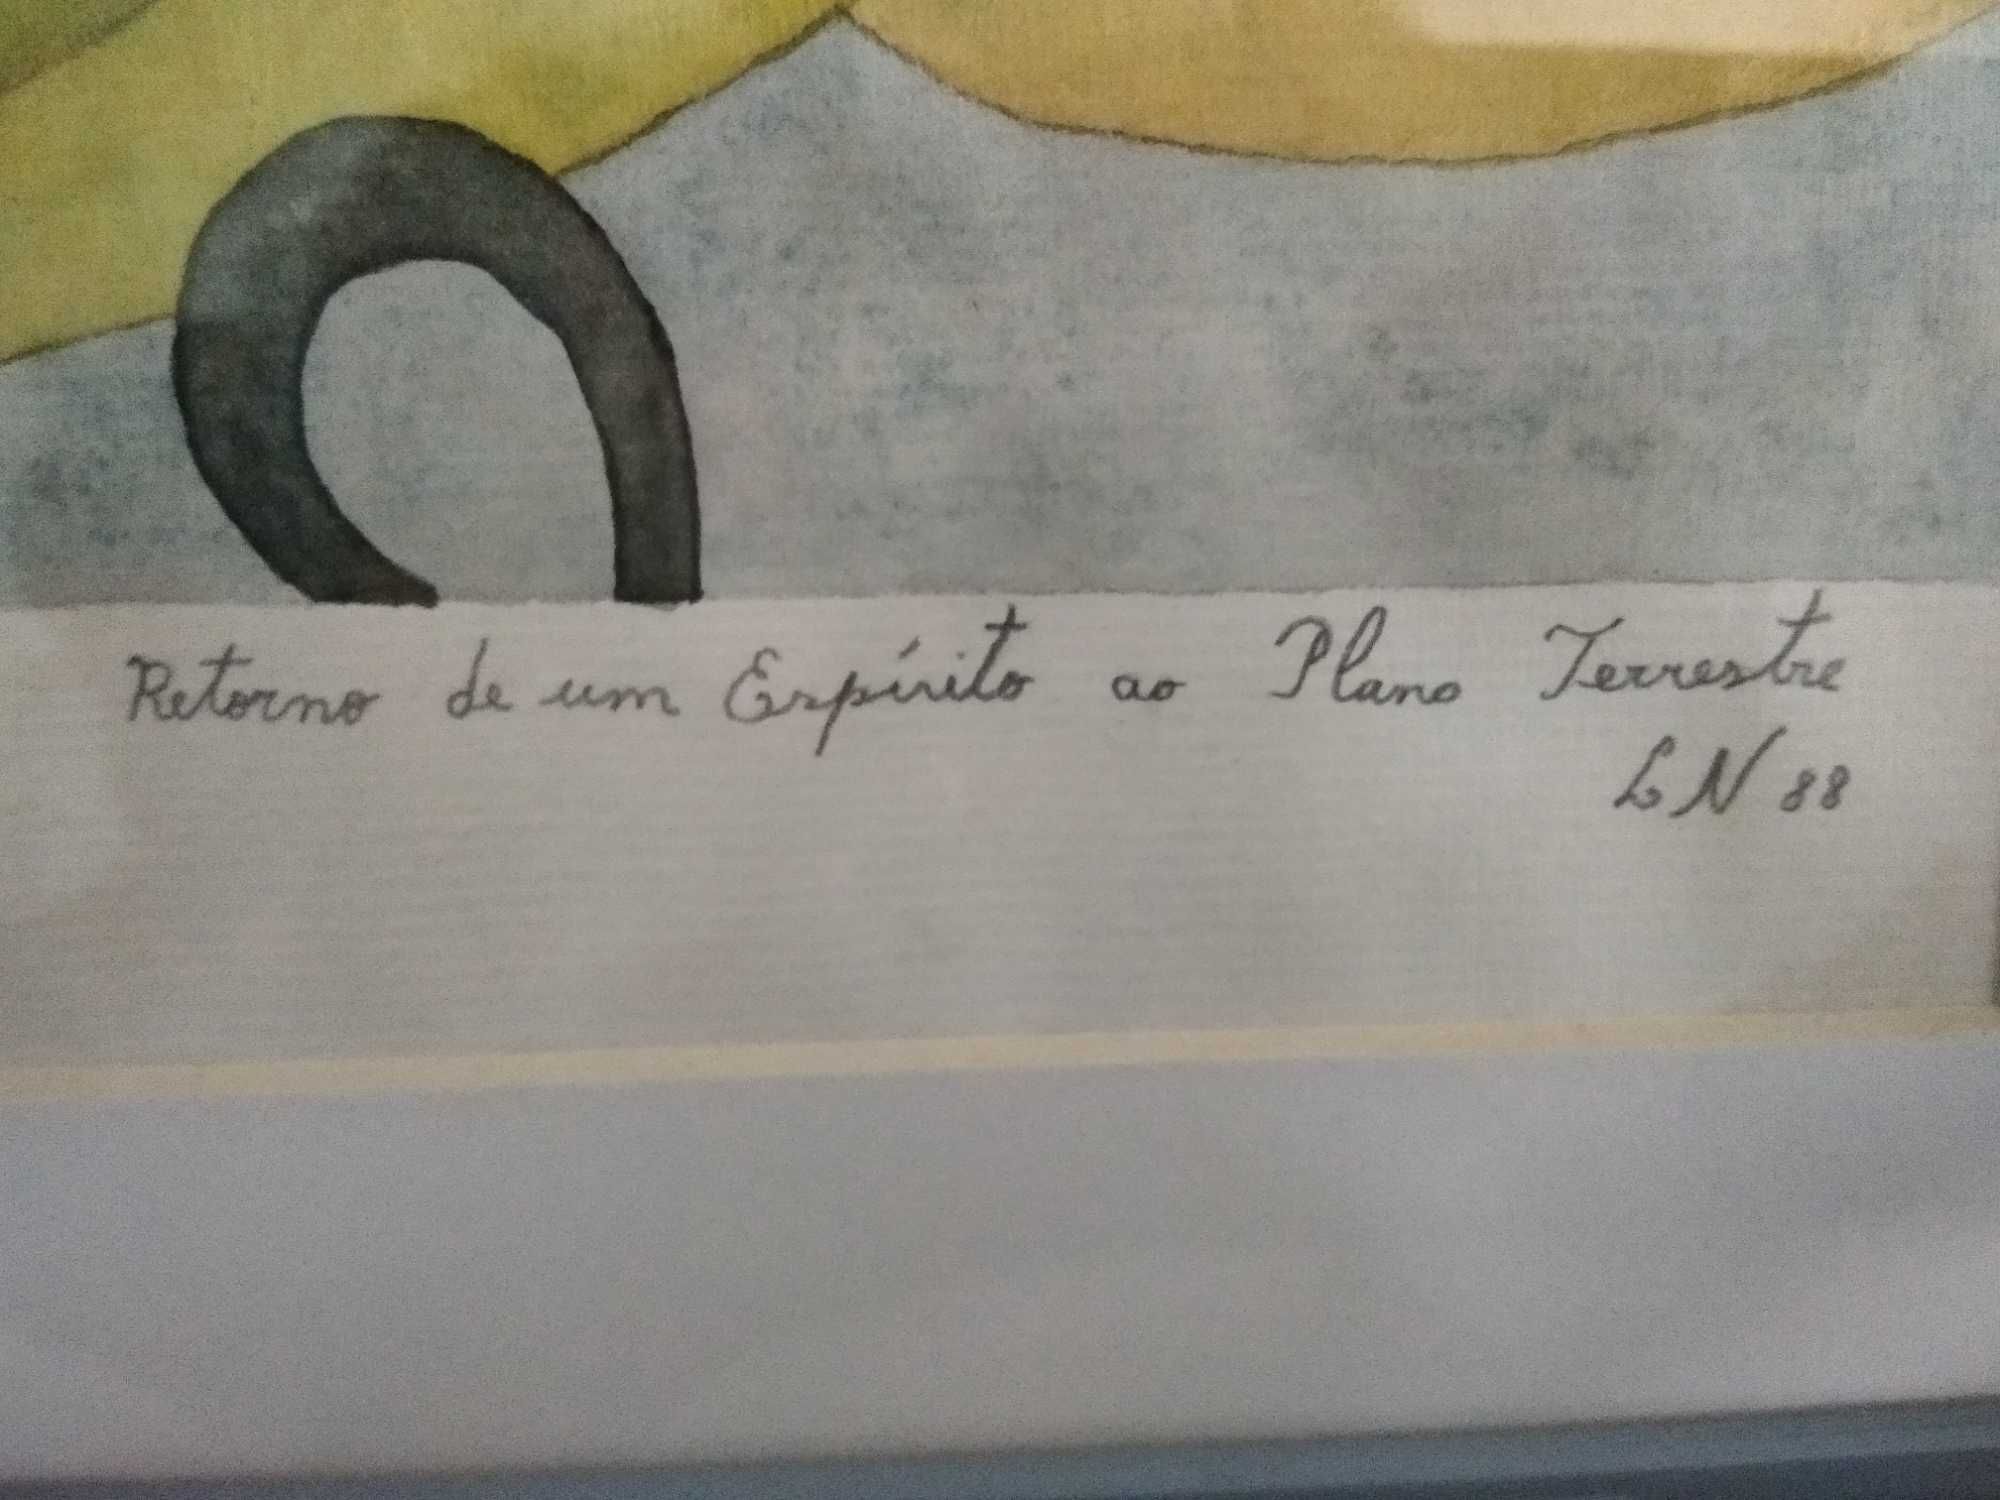 Retorno de um Espírito ao Plano Terrestre
LN 88